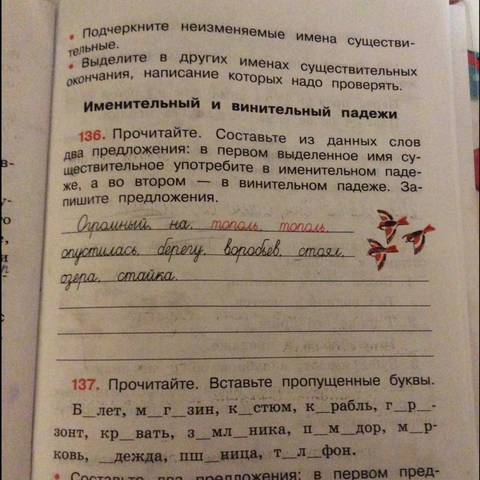 • Подчеркните неизменяемые имена существи-
тельные.
• Выделите в других именах существительных
окончания, написание которых надо проверять.
Именительный и винительный падежи
136. Прочитайте. Составьте из данных слов
два предложения: в первом выделенное имя су-
ществительное употребите в именительном паде-
же, а во втором — в винительном падеже. За-
пишите предложения.
Огромный, на, тополь, тополь,
опустилась, берегу, воробьев, стоял,
озера, стайка.
137. Прочитайте. Вставьте пропущенные буквы.
Б_лет, м_г_зин, к_стюм, к_рабль, г_р_-
зонт, кр_вать, з_мл_ника, п_м_дор, м_р-
ковь, _дежда, пш_ница, т_л_фон.
• Составьте два предложения: в первом пред-